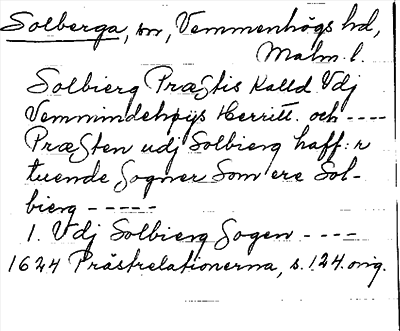 Solberga, sn, Vemmenhögs hd,
Malm. l.
Solbierg Præstis Kalld Vdj
Vemmindehøys Herritt. och ----
Præsten udj Solbierg haff:r
tuende Sogner Som ere Sol-
bierg -----
1. Vdj Solbierg Sogen ----
1624 Prästrelationerna, s. 124. orig.